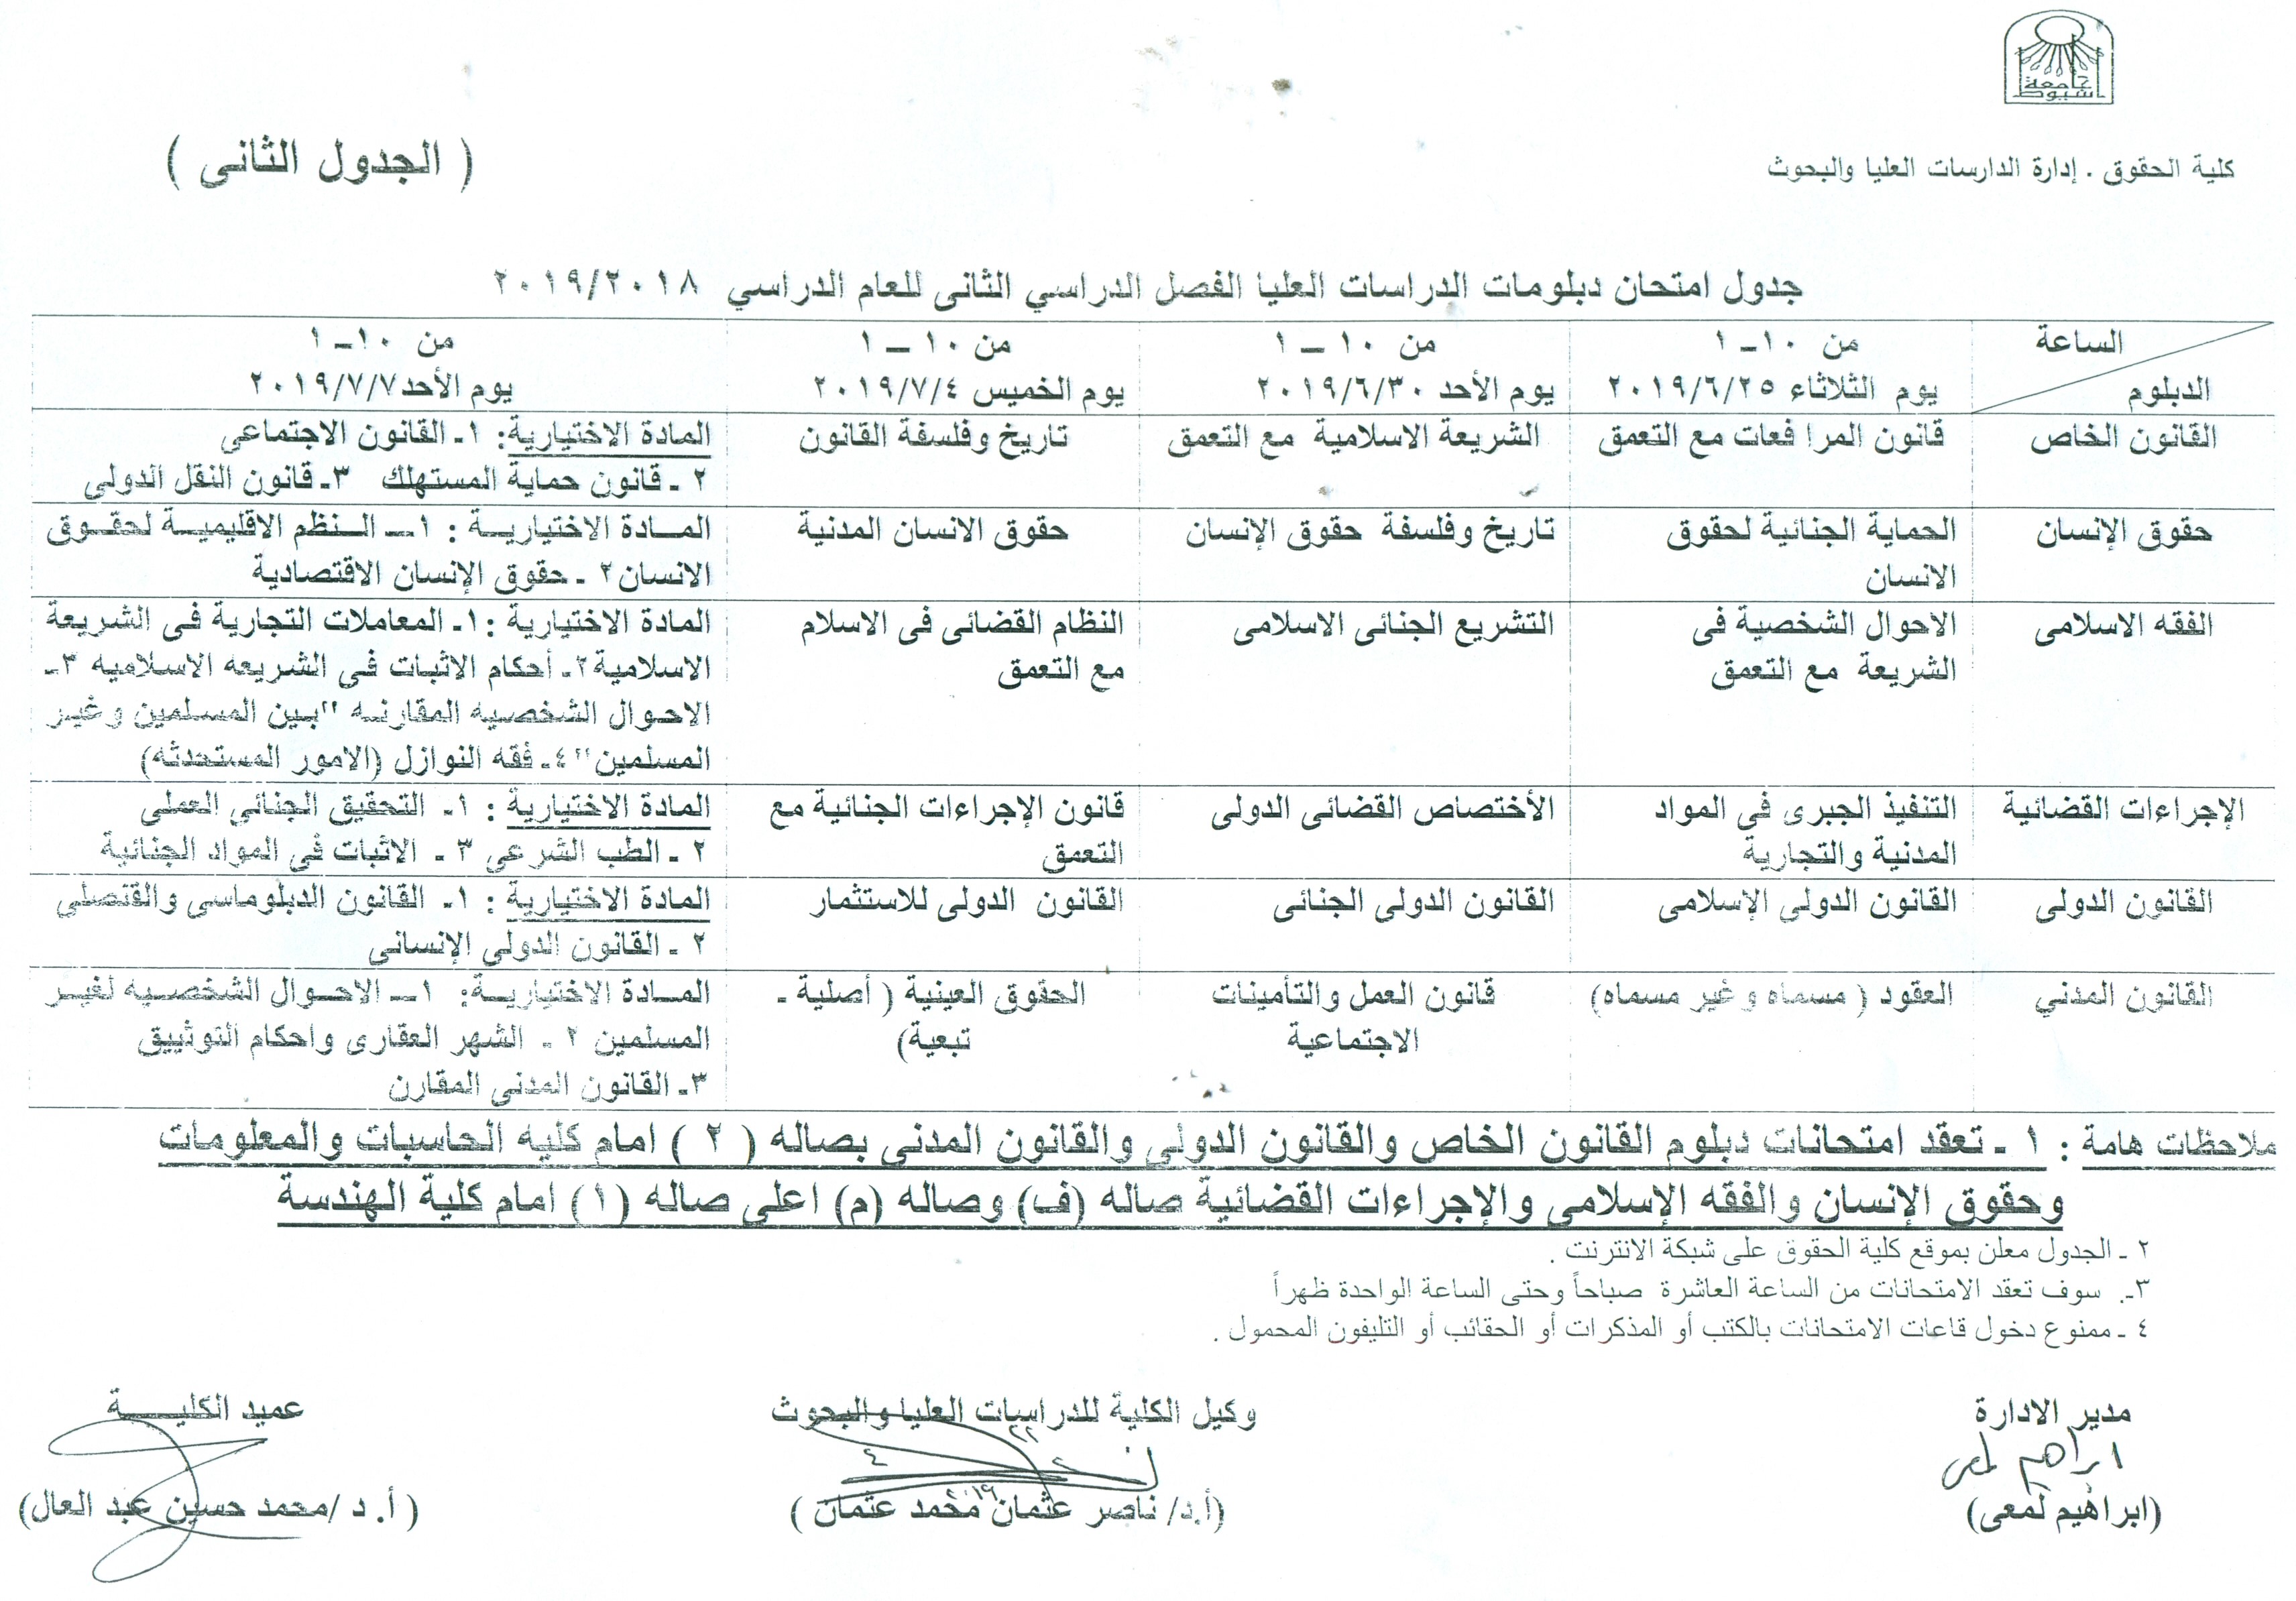 جامعة
أسيوط
كلية الحقوق . إدارة الدارسات العليا والبحوث
( الجدول الثانى )
جدول امتحان دبلومات الدراسات العليا الفصل الدراسي الثانى للعام الدراسي ٢٠١٩/٢٠١٨
الساعة
الدبلوم
من ١٠ـ ١
يوم الثلاثاء ٢٠١٩/٦/٢٥
من ١٠ – ١
يوم الأحد ٢٠١٩/٦/٣٠
من ١٠ – ١
يوم الخميس ٢٠١٩/٧/٤
من ١٠ـ ١
يوم الأحد٢٠١٩/٧/٧
القانون الخاص
قانون المرا فعات مع التعمق
الشريعة الاسلامية مع التعمق
تاريخ وفلسفة القانون
المادة الاختيارية: ١ـ القانون الاجتماعى
٢ ـ قانون حماية المستهلك ٣ـ قانون النقل الدولى
حقوق الإنسان
الحماية الجنائية لحقوق
الانسان
تاريخ وفلسفة حقوق الإنسان
حقوق الانسان المدنية
المـــادة الاختياريـــة : ١ــ الـــنظم الاقليميـــة لحقـــوق
الانسان٢ ـ حقوق الإنسان الاقتصادية
الفقه الاسلامى
الاحوال الشخصية فى
الشريعة مع التعمق
التشريع الجنائى الاسلامى
النظام القضائى فى الاسلام
مع التعمق
المادة الاختيارية :١ـ المعاملات التجارية فى الشريعة
الاسلامية٢ـ أحكام الاثبات فى الشريعه الاسلاميه ٣ـ
الاحوال الشخصيه المقارنه "بين المسلمين وغير
المسلمين"٤ـ فقه النوازل (الامور المستحدثه)
الإجراءات القضائية
التنفيذ الجبرى فى المواد
المدنية والتجارية
الأختصاص القضائى الدولى
قانون الإجراءات الجنائية مع
التعمق
المادة الاختيارية : ١ـ التحقيق الجنائى العملى
٢ ـ الطب الشرعى ٣ ـ الاثبات فى المواد الجنائية
القانون الدولى
القانون الدولى الإسلامى
القانون الدولى الجنائى
القانون الدولى للاستثمار
المادة الاختيارية : ١ـ القانون الدبلوماسى والقنصلى
٢ ـ القانون الدولى الإنسانى
القانون المدني
العقود ( مسماه وغير مسماه)
قانون العمل والتأمينات
الاجتماعية
الحقوق العينية ( أصلية ـ
تبعية)
المـــادة الاختياريـــة: ١ــ الاحـــوال الشخصـــيه لغيـــر
المسلمين ٢ ـ الشهر العقارى واحكام التوثييق
٣ـ القانون المدنى المقارن
ملاحظات هامة : ١ ـ تعقد امتحانات دبلوم القانون الخاص والقانون الدولى والقانون المدنى بصاله ( ٢ ) امام كليه الحاسبات والمعلومات
وحقوق الإنسان والفقه الإسلامى والإجراءات القضائية صاله (ف) وصاله (م) اعلى صاله (١) امام كلية الهندسة
٢ ـ الجدول معلن بموقع كلية الحقوق على شبكة الانترنت .
٣ـ. سوف تعقد الامتحانات من الساعة العاشرة صباحاً وحتى الساعة الواحدة ظهراً
٤ ـ ممنوع دخول قاعات الامتحانات بالكتب أو المذكرات أو الحقائب أو التليفون المحمول .
مدير الادارة
وكيل الكلية للدراسات العليا والبحوث
عميد الكليـــــة
ابراهيم لمعى
(ابراهيم لمعى)
(أ.د/ ناصر عثمان محمد عثمان )
( أ. د /محمد حسين عبد العال)